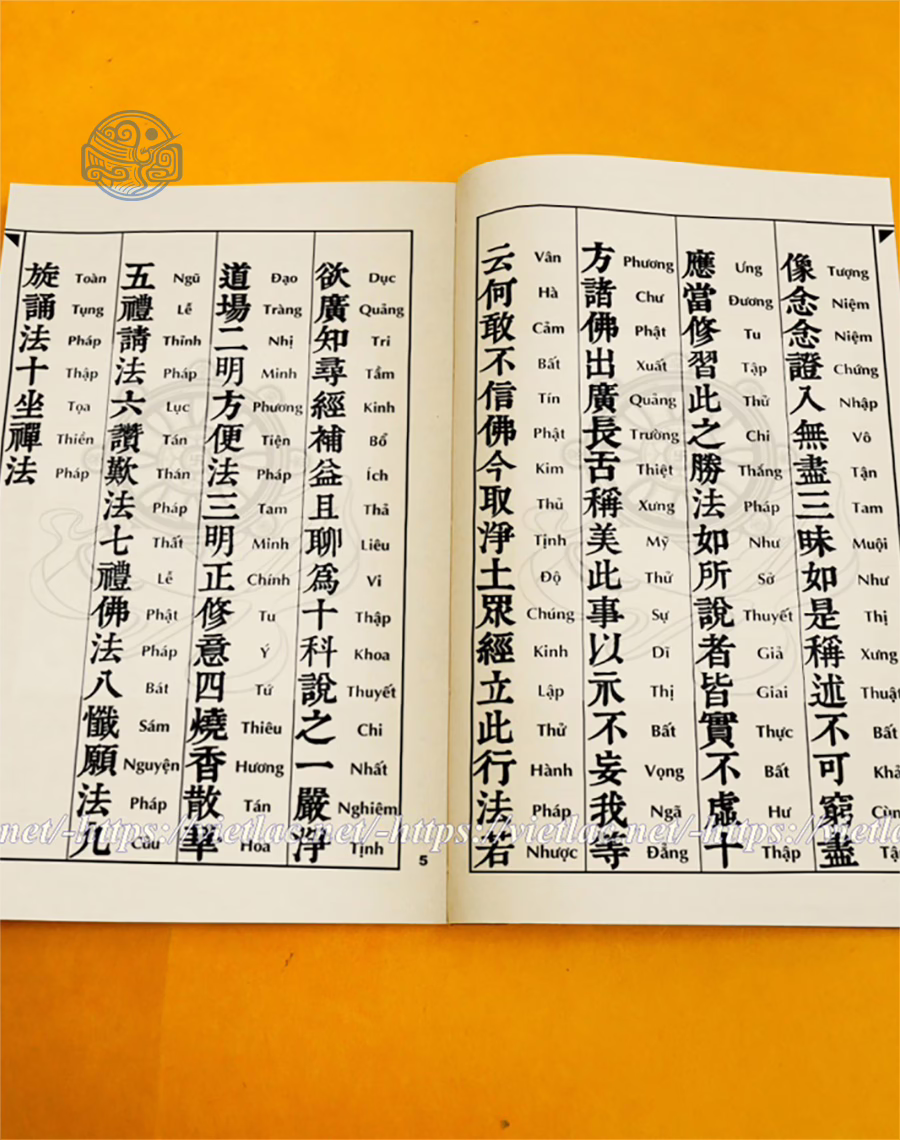 像念念證入無盡三昧如是稱述不可窮盡
Tượng Niệm Niệm Chứng Nhập Vô Tận Tam Muội Như Thị Xưng Thuật Bất
應當修習此之勝法如所說者皆實不虛十
Ưng Đương Tu Tập Thử Chi Thắng Pháp Như Sở Thuyết Giả Giai Thực Bất Hư Thập
方諸佛出廣長舌稱美此事以示不妄我等
Phương Chư Phật Xuất Quảng Trường Thiệt Xưng Mỹ Thử Sự Dĩ Thị Bất Vọng Ngã Đẳng
云何敢不信佛今取淨土眾經立此行法若
Vân Hà Cảm Bất Tín Phật Kim Thủ Tịnh Độ Chúng Kinh Lập Thử Hành Pháp Nhược
欲廣知尋經補益且聊爲十科說之一嚴淨
Dục Quảng Tri Tầm Kinh Bổ Ích Thả Liêu Vi Thập Khoa Thuyết Chi Nhất Nghiêm Tịnh
道場二明方便法三明正修意四燒香散華
Đạo Tràng Nhị Minh Phương Tiện Pháp Tam Minh Chính Tu Ý Tứ Thiêu Hương Tán Hoa
五禮請法六讚歎法七禮佛法八懺願法九
Ngũ Lễ Thỉnh Pháp Lục Tán Thán Pháp Thất Lễ Phật Pháp Bát Sám Nguyện Pháp Cửu
旋誦法十坐禪法
Toàn Tụng Pháp Thập Tọa Thiền Pháp
5
.net/-https://vietlac.net/-https://vietlac.net/